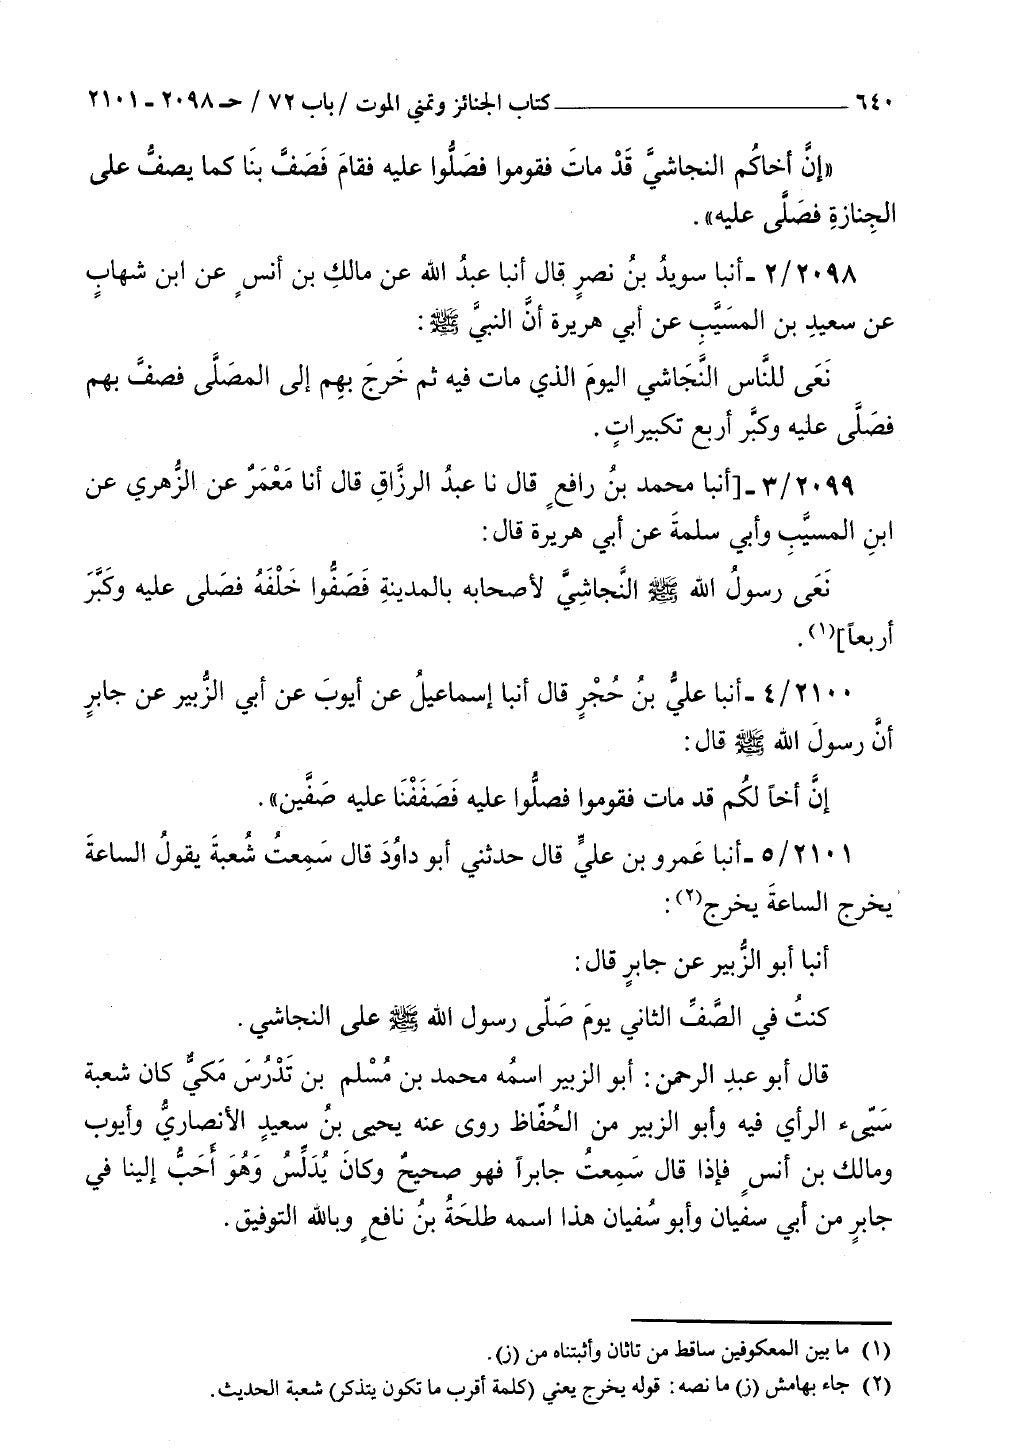 ٦٤٠ ـــــــــــــــــ كتاب الجنائز وتمني الموت / باب ٧٢ / حـ ٢٠٩٨ ـ ٢١٠١
«إنَّ أخاكُم النجاشيَّ قَدْ ماتَ فقوموا فصَلُّوا عليه فقامَ فَصَفَّ بنَا كما يصفُّ على
الجِنازةِ فصَلَّى عليه».
٢/٢٠٩٨ ـ أنبا سويدُ بنُ نصرٍ قال أنبا عبدُ الله عن مالكِ بن أنسٍ عن ابن شهابٍ
عن سعيدِ بن المسَيَّبِ عن أبي هريرة أنَّ النبيَّ ﷺ:
نَعَى للنَّاس النَّجَاشي اليومَ الذي مات فيه ثم خَرجَ بهِم إلى المصَلَّى فصفَّ بهم
فصَلَّى عليه وكبَّر أربع تكبيراتٍ.
٣/٢٠٩٩ ـ [أنبا محمد بنُ رافعٍ قال نا عبدُ الرزَّاقِ قال أنا مَعْمَرٌ عن الزُّهري عن
ابنِ المسيَّبِ وأبي سلمةَ عن أبي هريرة قال:
نَعَى رسولُ الله ﷺ النَّجاشِيَّ لأصحابه بالمدينةِ فَصَفُّوا خَلْفَهُ فصَلى عليه وكَبَّرَ
أربعاً](١).
٤/٢١٠٠ ـ أنبا عليُّ بنُ حُجْرٍ قال أنبا إسماعيلُ عن أيوبَ عن أبي الزُّبير عن جابرٍ
أنَّ رسولَ الله ﷺ قال:
إنَّ أخاً لكُم قد مات فقوموا فصلُّوا عليه فَصَفَفْنَا عليه صَفَّين».
٥/٢١٠١ ـ أنبا عَمرو بن عليٍّ قال حدثني أبو داوُدَ قال سَمِعتُ شُعبةَ يقولُ الساعةَ
يخرج الساعةَ يخرج(٢):
أنبا أبو الزُّبير عن جابرٍ قال:
كنتُ في الصَّفِّ الثاني يومَ صَلّى رسول الله ﷺ على النجاشي.
قال أبو عبدِ الرحمن: أبو الزبير اسمُه محمد بن مُسْلم بن تَدْرُسَ مَكيٌّ كان شعبة
سَيّىء الرأي فيه وأبو الزبير من الحُفّاظ روى عنه يحيى بنُ سعيدٍ الأنصاريُّ وأيوب
ومالك بن أنسٍ فإذا قال سَمِعتُ جابراً فهو صحيحٌ وكانَ يُدَلِّسُ وَهُوَ أَحَبُّ إلينا في
جابرٍ من أبي سفيان وأبو سُفيان هذا اسمه طلحَةُ بنُ نافعٍ وبالله التوفيق.
(١) ما بين المعكوفين ساقط من تاثان وأثبتناه من (ز).
(٢) جاء بهامش (ز) ما نصه: قوله يخرج يعني (كلمة أقرب ما تكون يتذكر) شعبة الحديث.